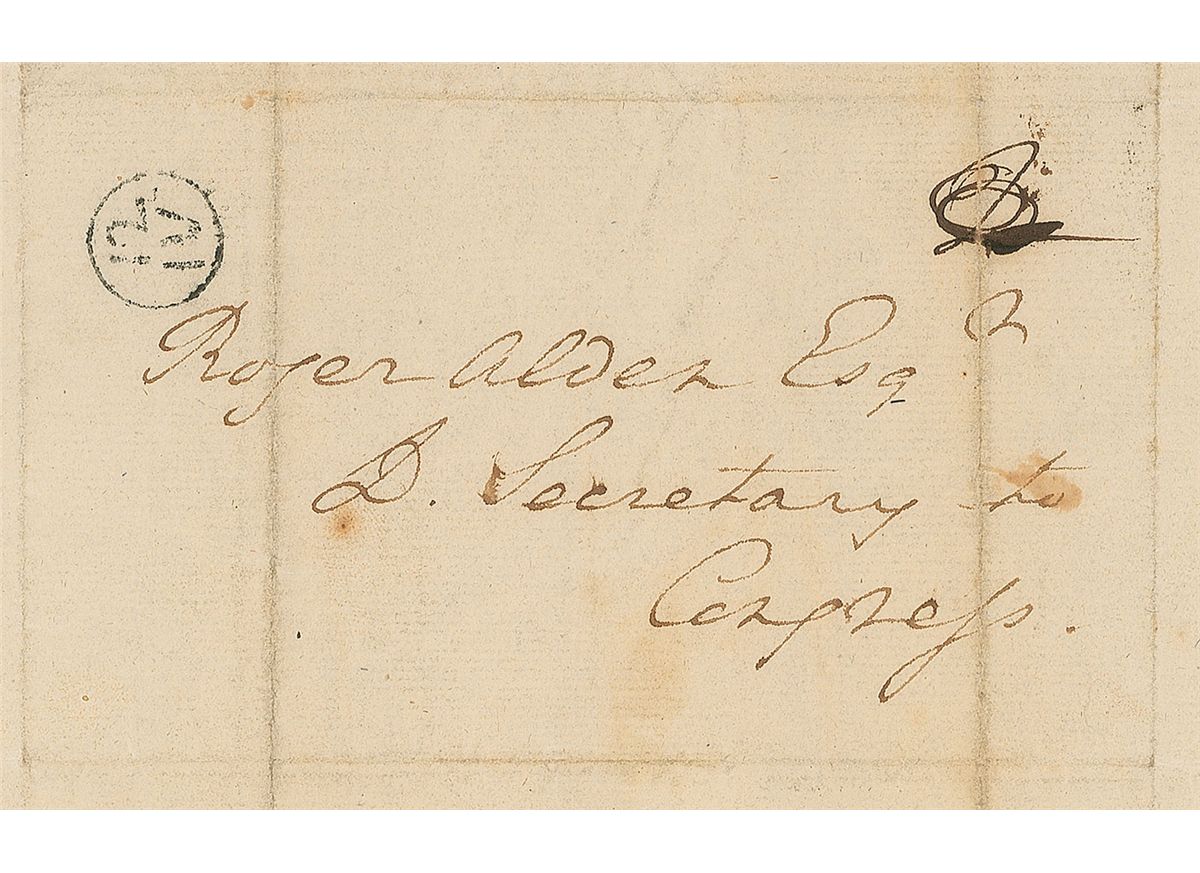 Roger Alden Esq^r
D. Secretary to
Congreſs.